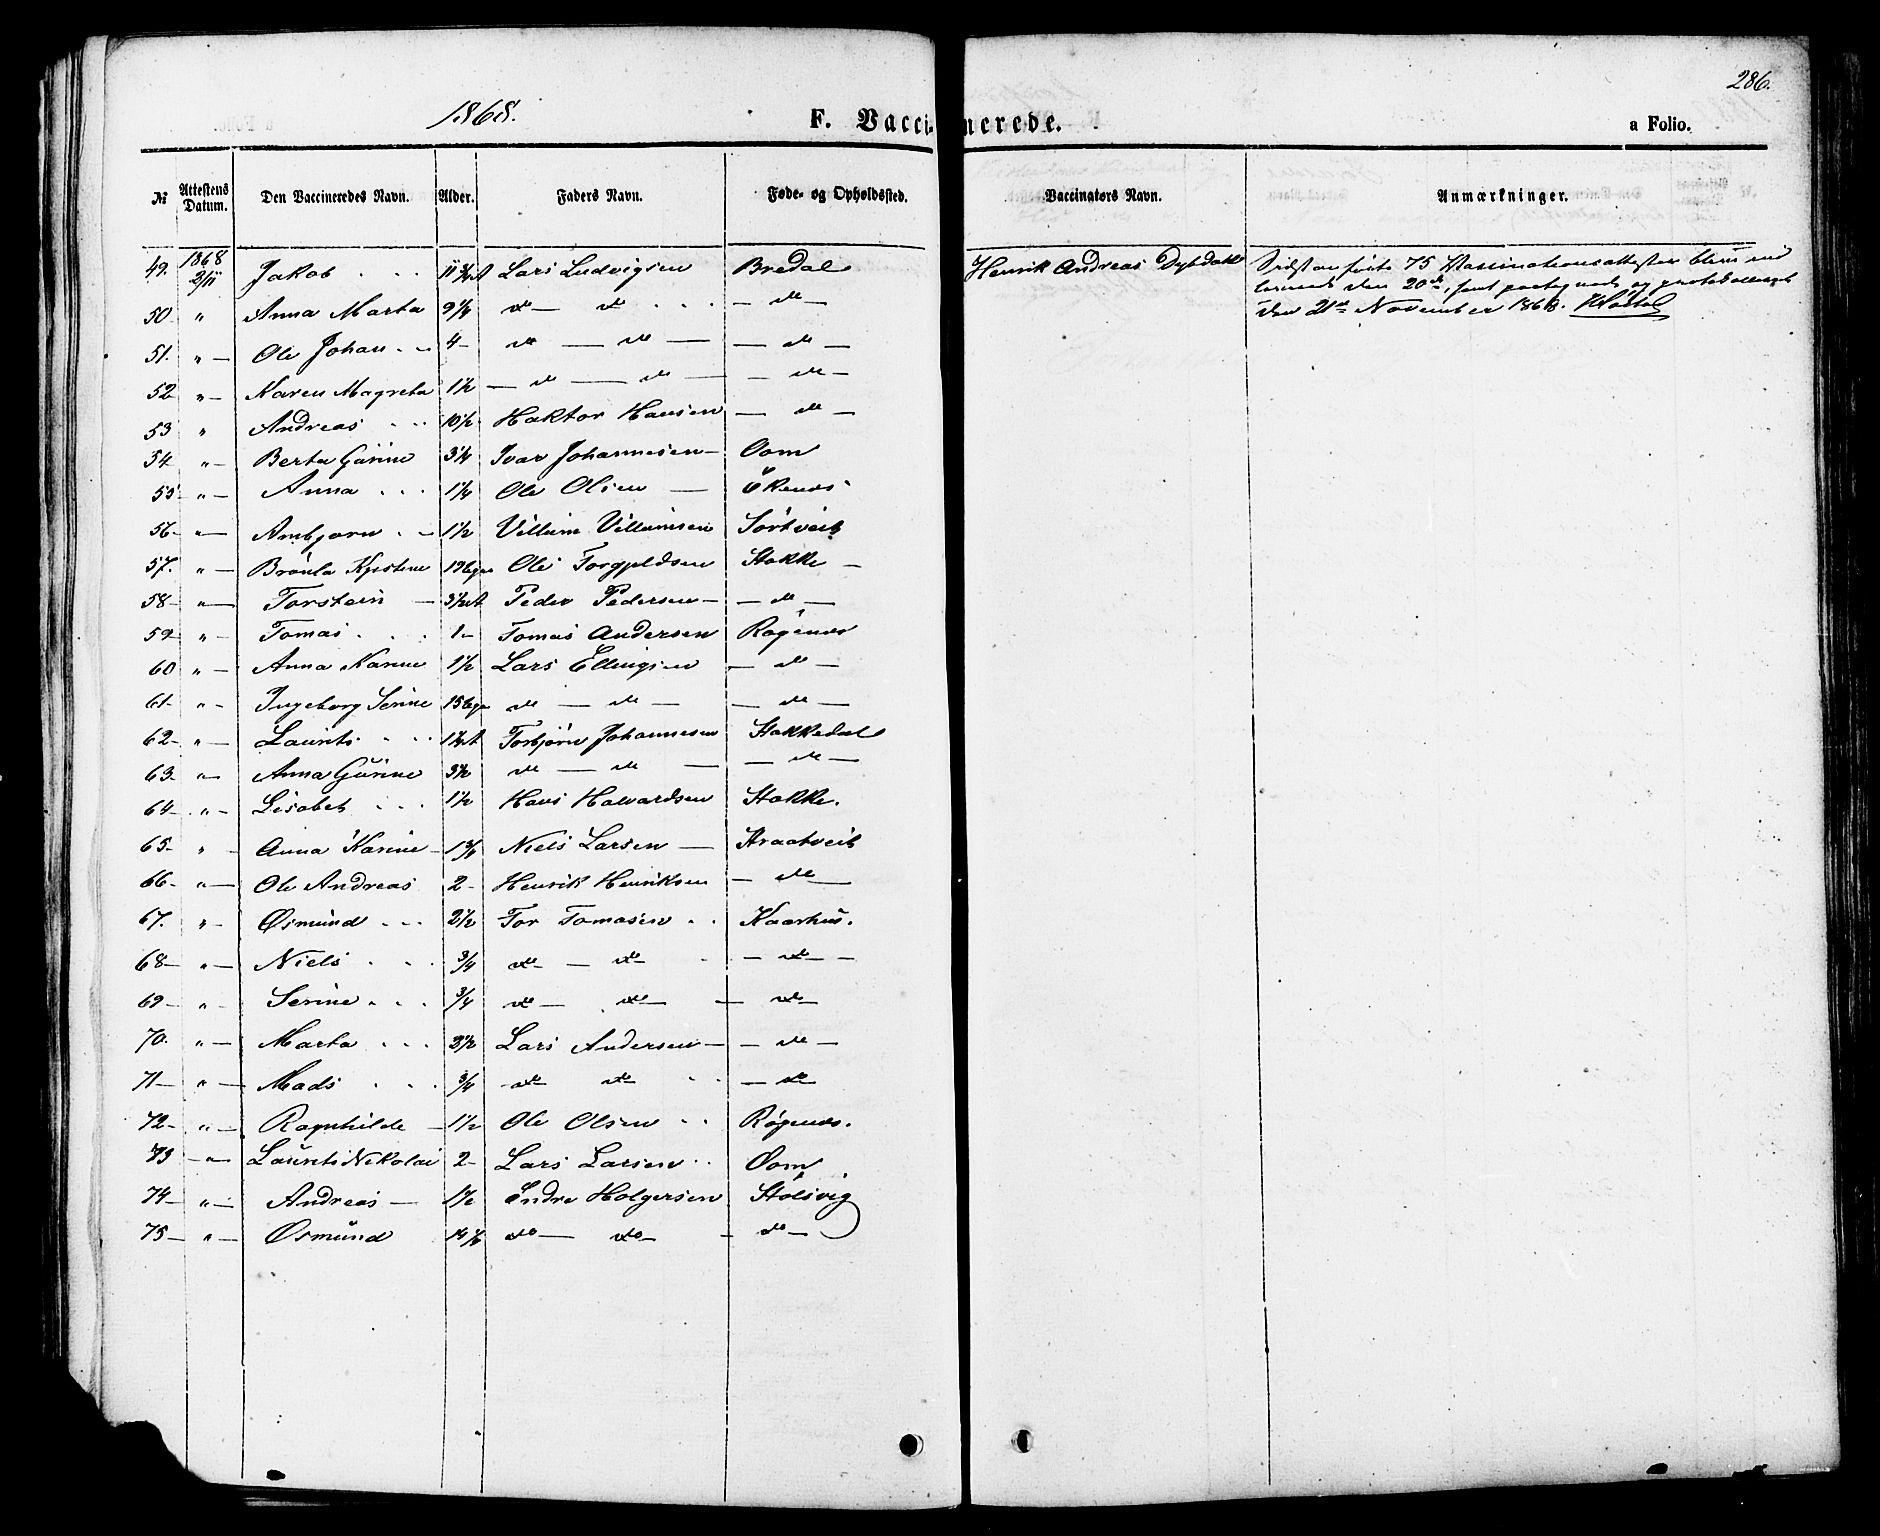 286.
1868. F. Vaccinerede. a Folio.
№ Attestens Datum. Den Vaccineredes Navn. Alder. Faders Navn. Føde- og Opholdssted. Vaccinators Navn. Anmærkninger.
49. 1868 2/11 Jakob Lars Ludvigsen Bredal Henrik Andreas Dybdahl
75 Vaccinationsattester
den 20de,
den 21de November 1868.
50 " Anna Marta do do do
51. " Ole Johan 4 do do do
52 " Karen Magreta 1½ do do do
53 " Andreas 10½ Haktor Hansen do
54 " Berta Gürine 3¼ Ivar Johannesen Oom
55 " Anna 1¼ Ole Olsen Økenæs
56 " Ambjørn 1½ Villum Villumsen Sørtveit
57. " Kystine Ole Torgyldsen Stokke
58 " Torstein Peder Pedersen do
59 " Tomas 1 Tomas Andersen Røgenæs
60 " Anna Karine 1½ Lars Ellingsen do
61 " Ingeborg Serine do do do
62 " Laurits Torbjørn Johannesen Stokkedal
63 " Anna Gürine 3½ do do do
64 " Lisabet 1½ Hans Halvardsen Stokke.
65 " Anna Karine 1¾ Niels Larsen Kraakveit
66 " Ole Andreas 2 Henrik Henriksen do
67. " Øsmünd 2½ Tor Tomasen Kaarhus.
68 " Niels ¾ do do do
69 " Serine ¾ do do do
70. " Marta 3½ Lars Andersen do
71 " Mads ¾ do do do
72 " Ragnhilde 1½ Ole Olsen Røgenæs.
73 " Laurits Nikolai 2 Lars Larsen Oom
74 " Andreas 1½ Endre Holgersen Stølsvig
75 " Øsmünd do do do